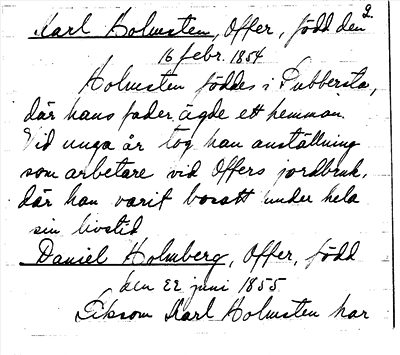 2.
Karl Holmsten, Offer, född den
16 febr. 1854
Holmsten föddes i Pubbersta,
där hans fader ägde ett hemman.
Vid unga år tog han anställning
som arbetare vid Offers jordbruk,
där han varit bosatt under hela
sin livstid
Daniel Holmberg, Offer, född
den 22 juni 1855
Liksom Karl Holmsten har